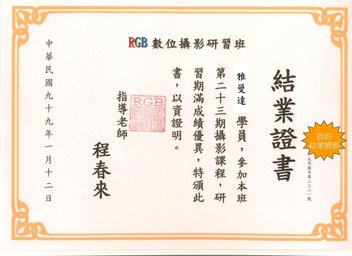 RGB數位攝影研習班
結業證書
雅曼達 學員，參加本班
第二十三期攝影課程，研
習期滿成績優異，特頒此
書，以資證明。
指導老師
RGB
程春來
中華民國九十九年一月十二日
我的
結業號碼